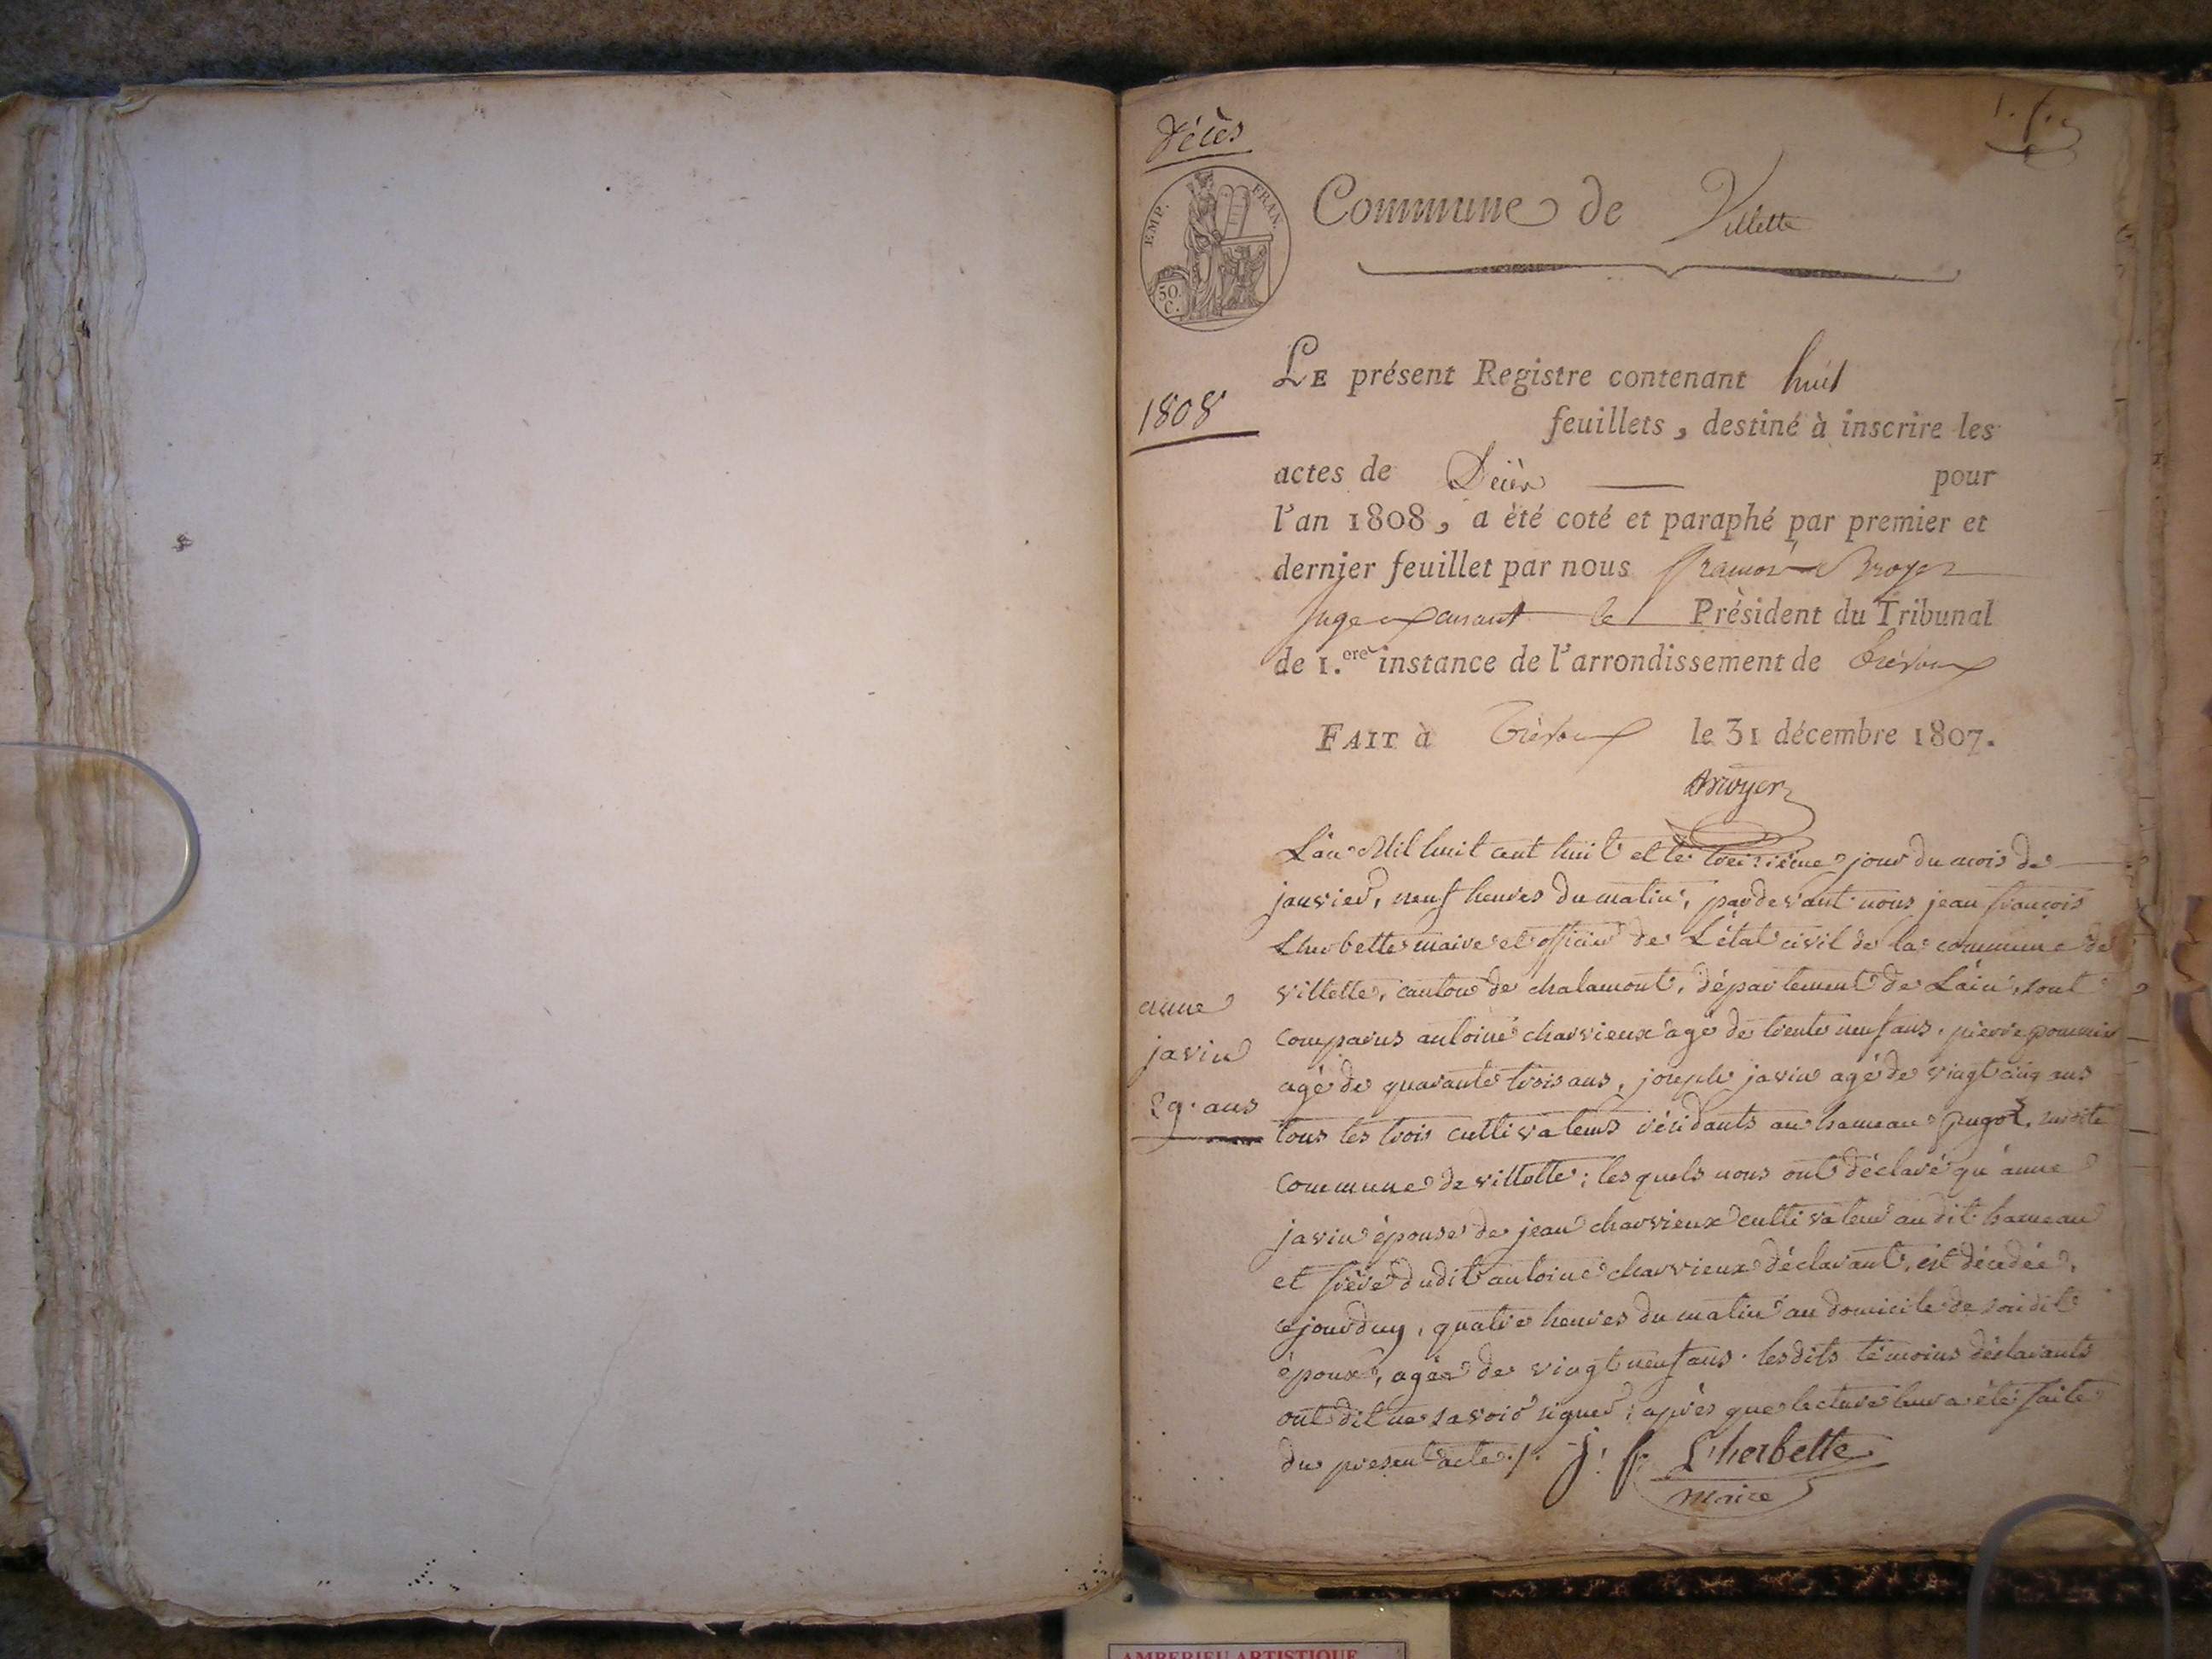 Décès
1. f.
EMP. FRAN.
50.
C.
Commune de Villette
1808
LE présent Registre contenant huit
feuillets, destiné à inscrire les
actes de Décès pour
l'an 1808, a èté coté et paraphé par premier et
dernier feuillet par nous Broyer
Juge le Prèsident du Tribunal
de 1.ere instance de l'arrondissement de Trévoux
FAIT à Trévoux le 31 décembre 1807.
Broyer
L'an Mil huit cent huit et le treizième jour du mois de
janvier, neuf heures du matin, pardevant nous jean françois
Lherbette maire et officier de L'état civil de la commune de
villette, canton de chalamont, département de L'ain, sont
comparus antoine charvieux agé de trente neuf ans, pierre pommier
agé de quarante trois ans, joseph javin agé de vingt cinq ans
tous les trois cultivateurs résidants au hameau
commune de villette; lesquels nous ont déclaré qu'anne
javin épouse de jean charvieux cultivateur audit hameau
et frère dudit antoine charvieux déclarant, est décédée,
cejourduy, quatre heures du matin au domicile de sondit
époux, agée de vingt neuf ans. lesdits témoins déclarants
ont dit ne savoir signer; après que lecture leur a été faite
du present acte ./.
j. f. L'herbette
maire
anne
javin
29. ans
AMBERIEU ARTISTIQUE